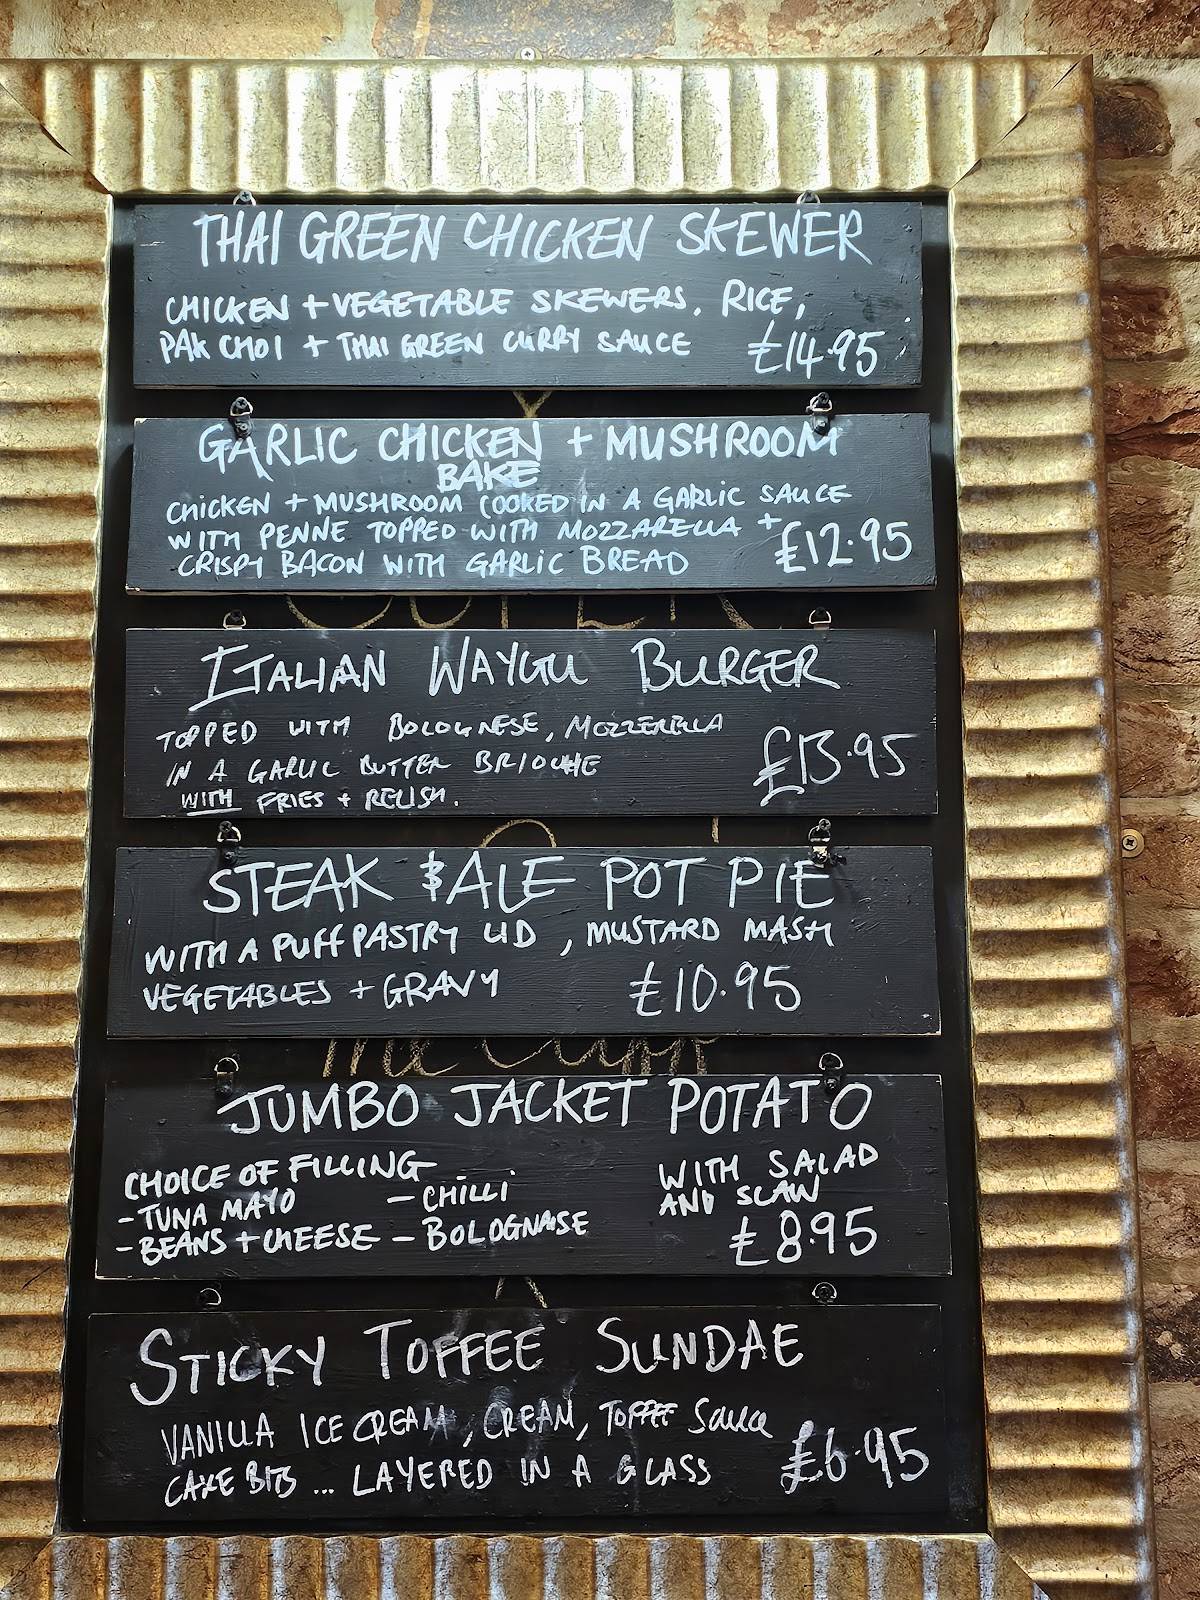 THAI GREEN CHICKEN SKEWER
CHICKEN + VEGETABLE SKEWERS, RICE,
PAK CHOI + THAI GREEN CURRY SAUCE £14.95
GARLIC CHICKEN + MUSHROOM
BAKE
CHICKEN + MUSHROOM COOKED IN A GARLIC SAUCE
WITH PENNE TOPPED WITH MOZZARELLA +
CRISPY BACON WITH GARLIC BREAD £12.95
ITALIAN WAYGU BURGER
TOPPED WITH BOLOGNESE, MOZZERELLA
IN A GARLIC BUTTER BRIOCHE £13.95
WITH FRIES + RELISH.
STEAK & ALE POT PIE
WITH A PUFF PASTRY LID, MUSTARD MASH
VEGETABLES + GRAVY £10.95
JUMBO JACKET POTATO
CHOICE OF FILLING WITH SALAD
- TUNA MAYO - CHILLI AND SLAW
- BEANS + CHEESE - BOLOGNAISE £8.95
STICKY TOFFEE SUNDAE
VANILLA ICE CREAM, CREAM, TOFFEE Sauce
CAKE BITS... LAYERED IN A GLASS £6.95